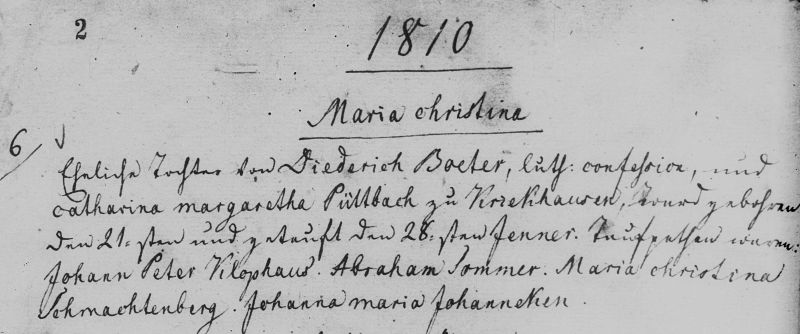 2
1810
Maria christina
6
Eheliche Tochter von Diederich Boeter, luth: confession, und
Catharina margaretha Püttbach zu Kriekhausen, ward gebohren
den 21:sten und getauft den 28:sten Jenner. Taufpathen waren:
Johann Peter Klophaus. Abraham Sommer. Maria christina
Schmachtenberg. Johanna maria Johanneken.